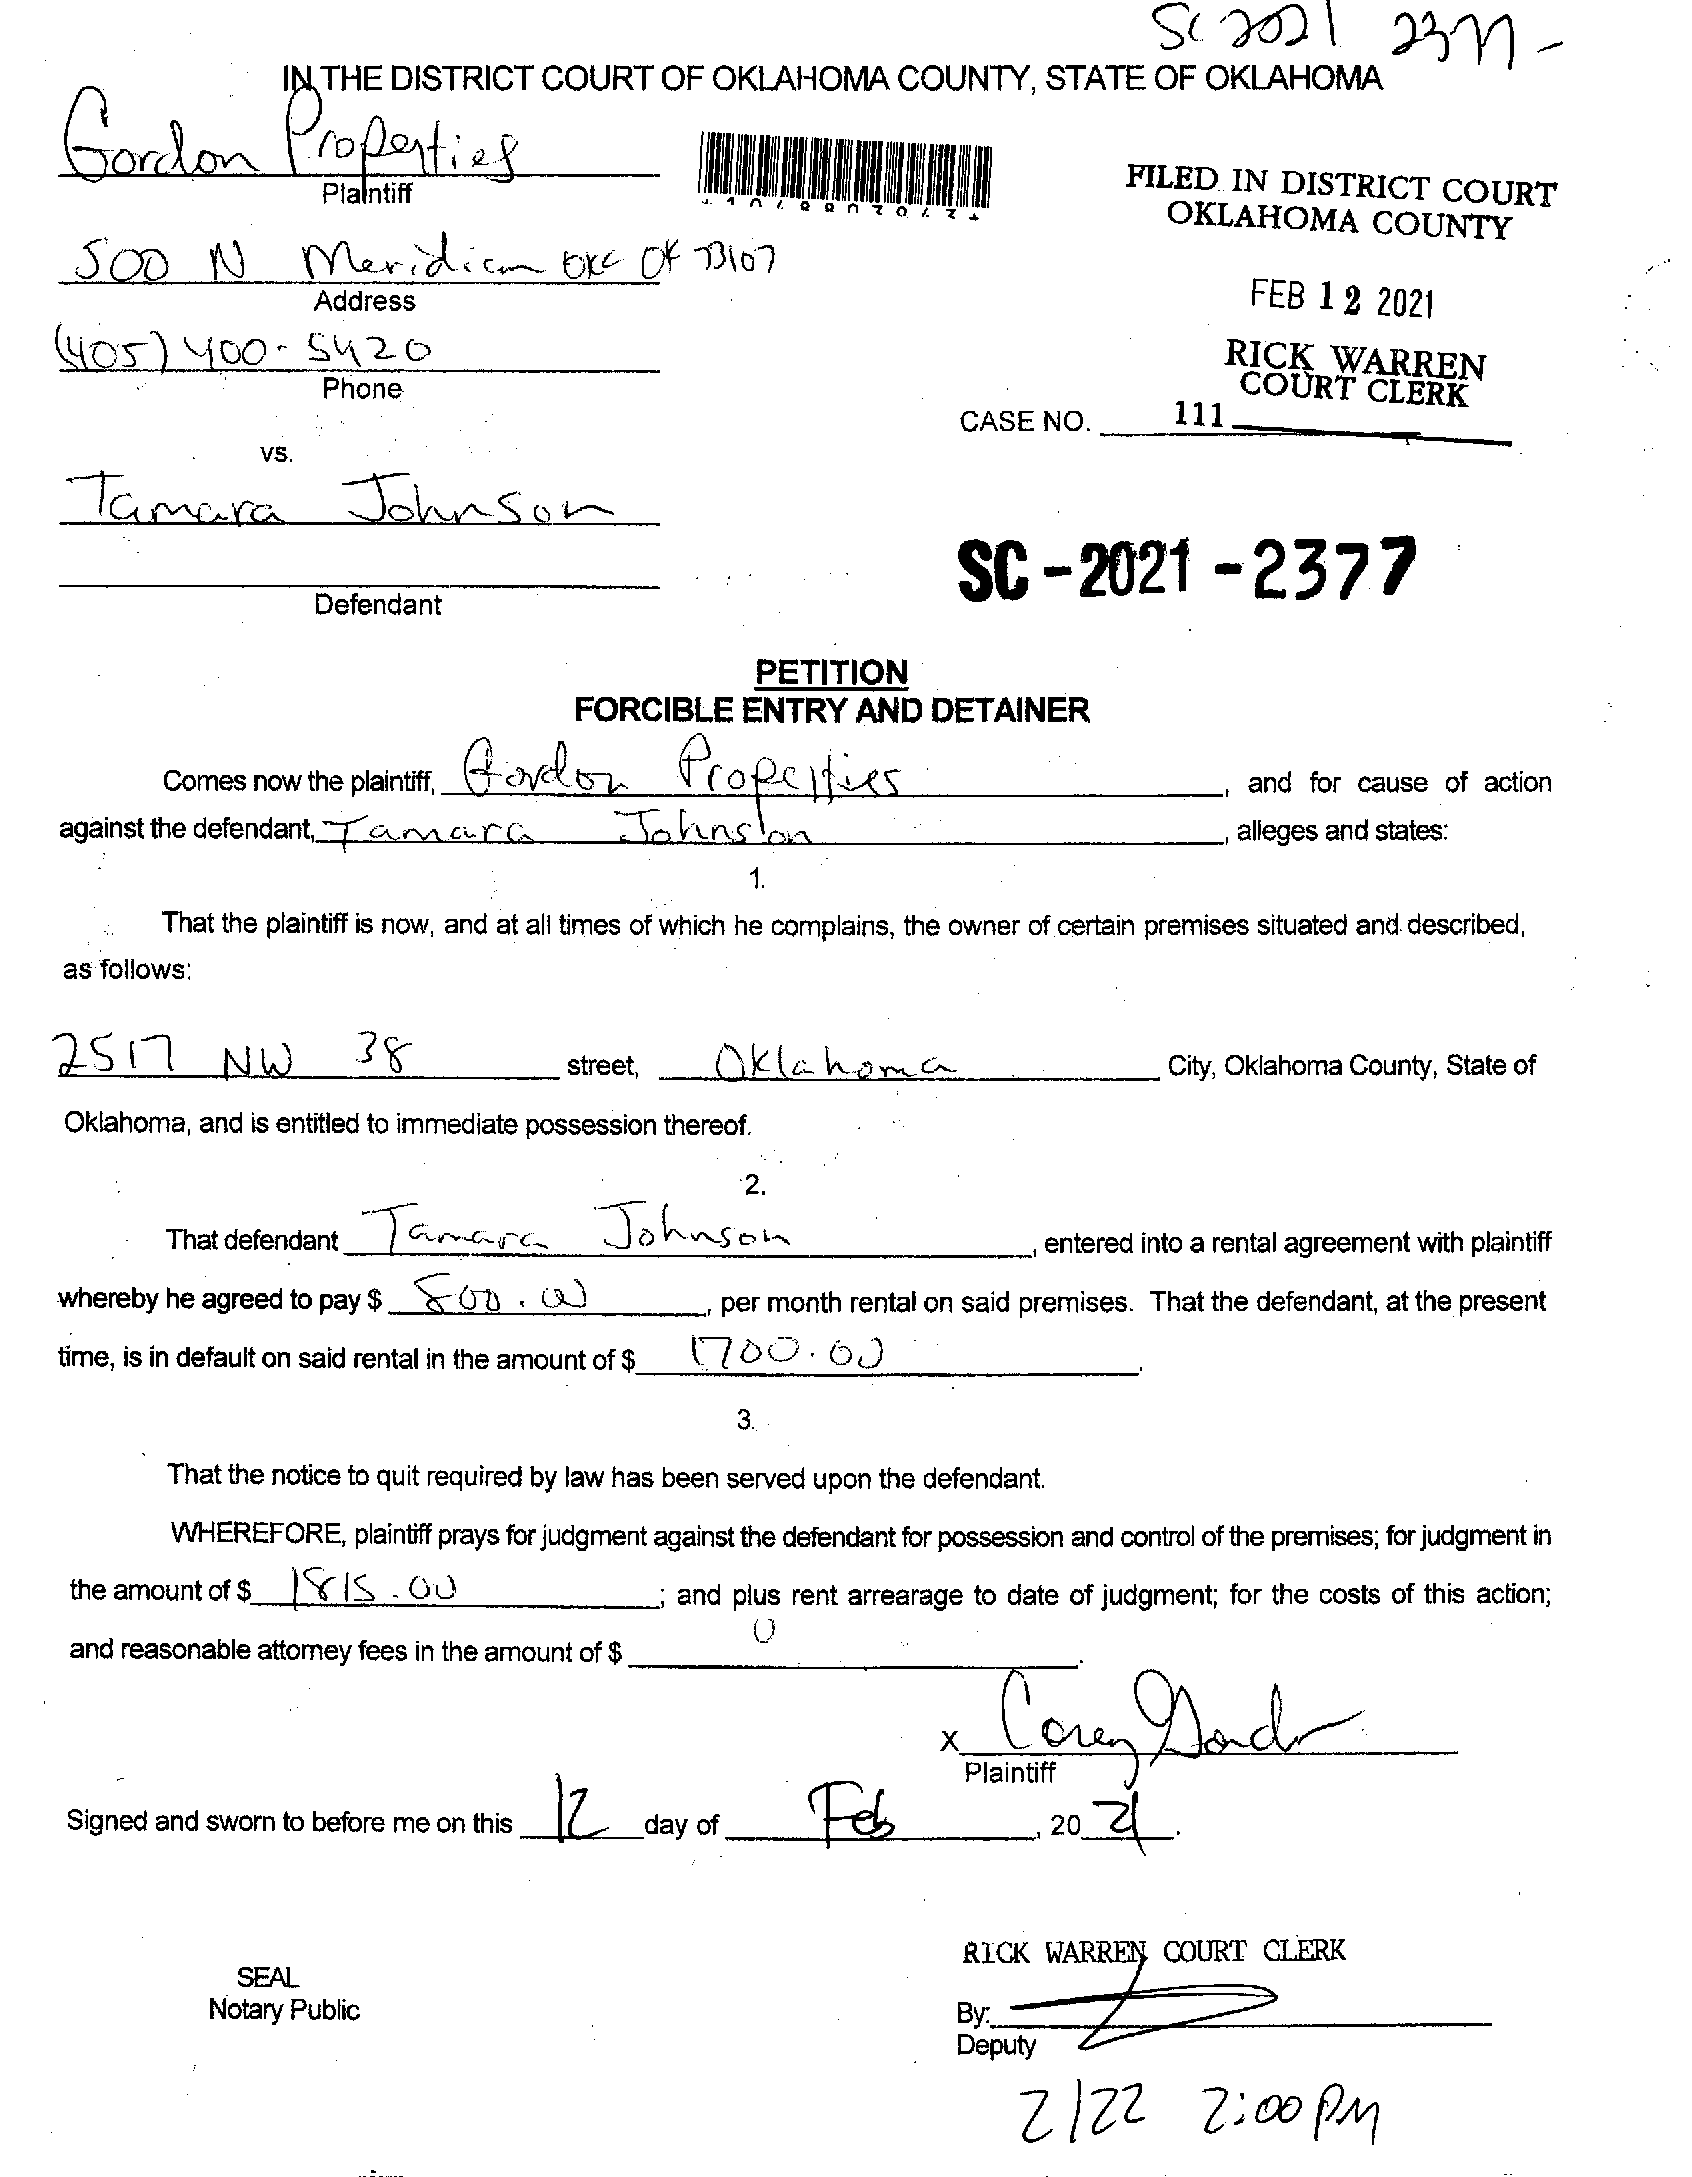 SC 2021 2377-
IN THE DISTRICT COURT OF OKLAHOMA COUNTY, STATE OF OKLAHOMA
Gordon Properties
Plaintiff
500 N Meridian OKC OK 73107
Address
(405) 400-5420
Phone
vs.
Tamara Johnson
Defendant
FILED IN DISTRICT COURT
OKLAHOMA COUNTY
FEB 12 2021
RICK WARREN
COURT CLERK
CASE NO. 111
SC-2021-2377
PETITION
FORCIBLE ENTRY AND DETAINER
Comes now the plaintiff, Gordon Properties, and for cause of action
against the defendant, Tamara Johnson, alleges and states:
1.
That the plaintiff is now, and at all times of which he complains, the owner of certain premises situated and described,
as follows:
2517 NW 38 street, Oklahoma City, Oklahoma County, State of
Oklahoma, and is entitled to immediate possession thereof.
2.
That defendant Tamara Johnson, entered into a rental agreement with plaintiff
whereby he agreed to pay $ 800.00, per month rental on said premises. That the defendant, at the present
time, is in default on said rental in the amount of $ 1700.00.
3.
That the notice to quit required by law has been served upon the defendant.
WHEREFORE, plaintiff prays for judgment against the defendant for possession and control of the premises; for judgment in
the amount of $ 1815.00; and plus rent arrearage to date of judgment; for the costs of this action;
and reasonable attorney fees in the amount of $ 0.
x Corey Gordon
Plaintiff
Signed and sworn to before me on this 12 day of Feb, 20 21.
SEAL
Notary Public
RICK WARREN COURT CLERK
By:
Deputy
2/22 2:00 PM